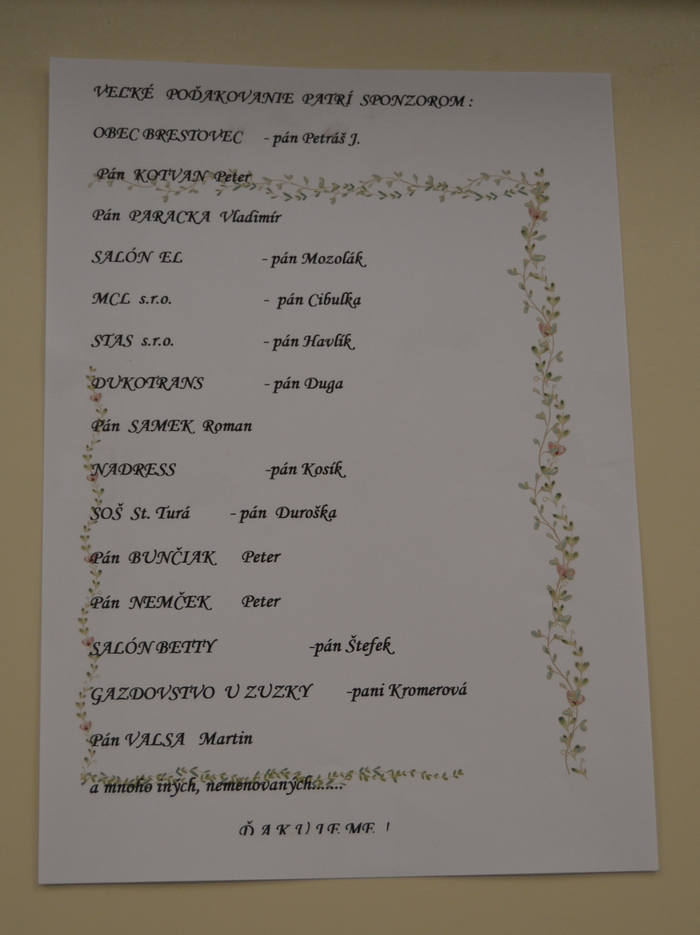 VEĽKÉ POĎAKOVANIE PATRÍ SPONZOROM :
OBEC BRESTOVEC - pán Petráš J.
Pán KOTVAN Peter
Pán PARACKA Vladimír
SALÓN EL - pán Mozolák
MCL s.r.o. - pán Cibulka
STAS s.r.o. - pán Havlík
DUKOTRANS - pán Duga
Pán SAMEK Roman
NADRESS -pán Kosík
SOŠ St. Turá - pán Duroška
Pán BUNČIAK Peter
Pán NEMČEK Peter
SALÓN BETTY -pán Štefek
GAZDOVSTVO U ZUZKY -pani Kromerová
Pán VALSA Martin
a mnoho iných, nemenovaných.......
Ď A K U J E M E !